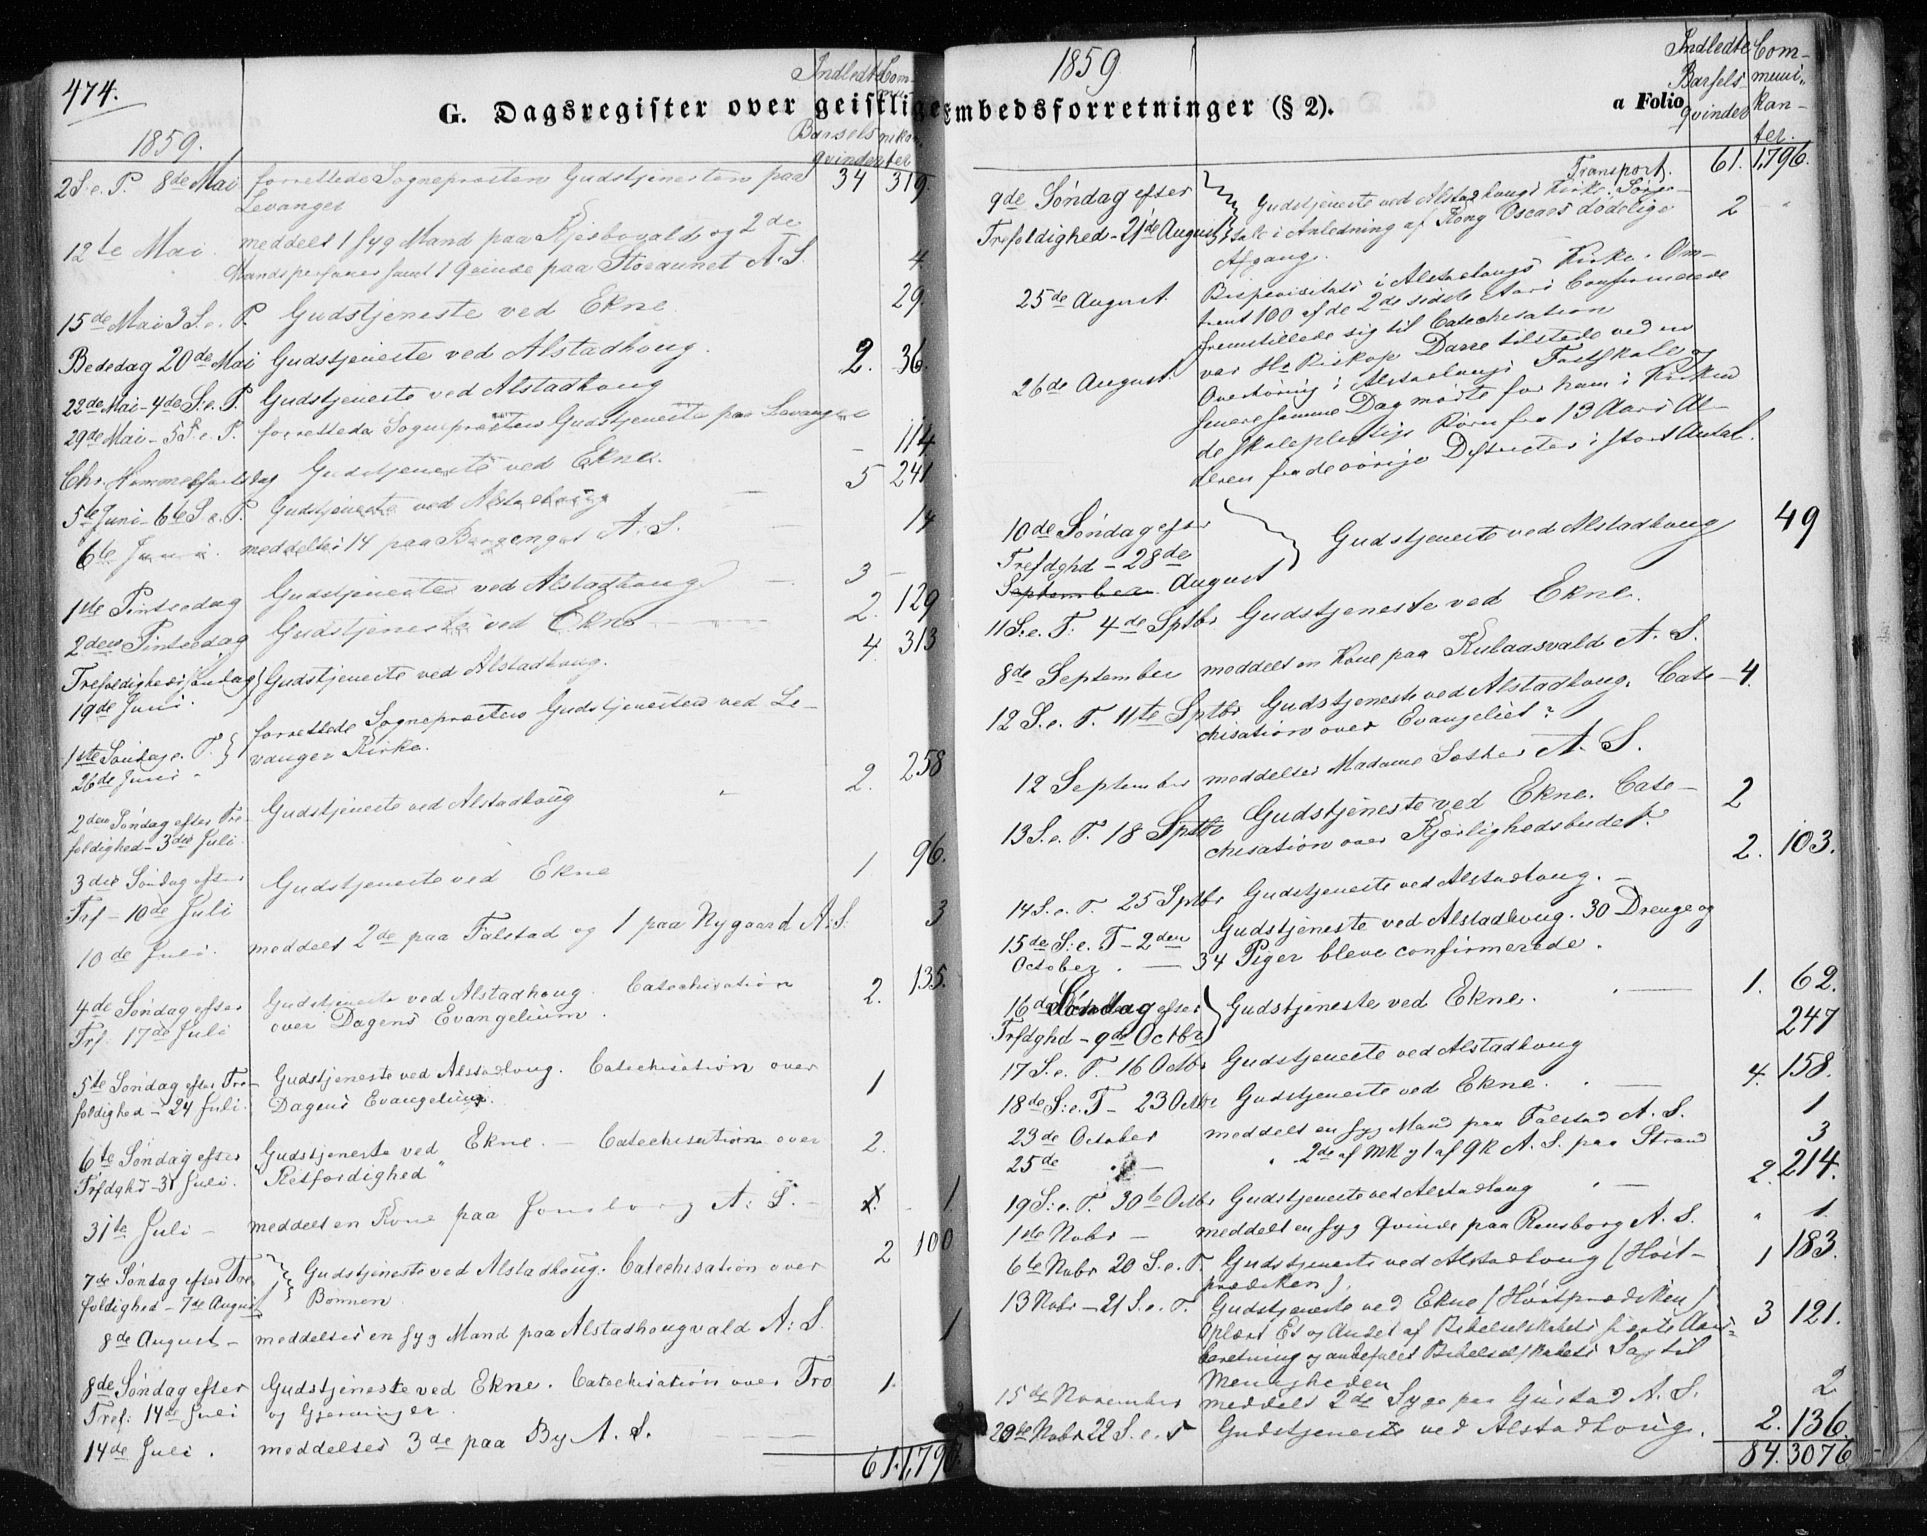 474.
G. Dagsregister over geistlige Embedsforretninger (§ 2).
1859.
Indledte Com-
mu-
Barsels nikan-
qvinder ter
2 S. e. P. 8de Mai forrettede Sognepræsten Gudstjenesten paa 34 319.
Levanger
12te Mai. meddelt 1 syg Mand paa og 2de
Mandspersoner samt 1 Qvinde paa Storaunet A. S. 4.
15de Mai 3 S. e. P. Gudstjeneste ved Ekne 29.
Bededag 20de Mai Gudstjeneste ved Alstadhoug. 2. 36.
22de Mai - 4de S. e. P. Gudstjeneste ved Alstadhoug
29de Mai - 5 S. e. P. forrettede Sognepræsten Gudstjeneste paa Levanger - 114
Chr. Himmelfartsdag Gudstjeneste ved Ekne. 5 241
5te Juni - 6te S. e. P. Gudstjeneste ved Alstadhoug —
6te Juni. meddeltes 14 paa A. S. — 14
1ste Pintsedag Gudstjeneste ved Alstadhoug — 3 —
2den Pintsedag Gudstjeneste ved Ekne 2. 129
Trefoldighedssøndag } Gudstjeneste ved Alstadhoug. 4. 313
19de Juni.
1ste Søndag e. T. } forrettede Sognepræsten Gudstjenesten ved Le-
26de Juni - vanger Kirke.
2den Søndag efter Tre- Gudstjeneste ved Alstadhoug 2. 258
foldighed - 3die Juli
3die Søndag efter Gudstjeneste ved Ekne 1 96.
Trf - 10de Juli
10de Juli. meddelt 2de paa Falstad og 1 paa Nygaard A. S. 3
4de Søndag efter Gudstjeneste ved Alstadhoug. Catechisation 2. 135.
Trf. 17de Juli over Dagens Evangelium.
5te Søndag efter Tre- Gudstjeneste ved Alstadhoug. Catechisation over 1
foldighed - 24 Juli. Dagens Evangelium.
6te Søndag efter Gudstjeneste ved Ekne. — Catechisation over 2.
Trfdghd - 31 Juli. "Retfærdighed"
31te Juli - meddelt en Kone paa Jonsborg A: S. - 1
7de Søndag efter Tre- } Gudstjeneste ved Alstadhoug. Catechisation over 2 100
foldighed - 7de August Bønnen.
8de August - meddeltes en syg Mand paa Alstadhougvald A: S. 1
8de Søndag efter Gudstjeneste ved Ekne. Catechisation over Tro 1.
Tref: 14de Juli og Gjerninger.
14de Juli. meddeltes 3de paa By A. S. —
61. 1,796
1859
a Folio
Indledte Com-
Barsels- muni-
qvinder kan-
ter.
Transport. 61. 1,796.
9de Søndag efter } Gudstjeneste ved Alstadhougs Kirke. Sørge-
Trefoldighed - 21de August tale i Anledning af Kong Oscars dødelige 2 "
Afgang.
25de August. Bispevisitats i Alstadhougs Kirke. Om-
trent 100 af de 2de sidste Aars Confirmerede
fremstillede sig til Catechisation
26de August. var Hr. Biskop Darre tilstede ved en
Overhøring i Alstadhougs Fastskole og
senere samme Dag mødte for ham i Kirken
de skolepligtige Børn fra 13 Aars Al-
deren fra de øvrige Districter i stort Antal.
10de Søndag efter } Gudstjeneste ved Alstadhoug 49
Trefdghd - 28de
September August
11 S. e. T. 4de Sptbr Gudstjeneste ved Ekne.
8de September meddelt en Kone paa Kulaasvald A. S.
12 S. e. T. 11te Sptbr Gudstjeneste ved Alstadhoug. Cate- 4.
chisation over Evangeliet.
12 September meddeltes Madame A. S.
13 S. e. T. 18 Sptbr Gudstjeneste ved Ekne. Cate- 2
chisation over Kjærlighedsbudet. 2. 103.
14 S. e. T. 25 Sptbr Gudstjeneste ved Alstadhoug. -
15de S: e. T - 2den Gudstjeneste ved Alstadhoug. 30 Drenge og
October. — 34 Piger bleve confirmerede.
16de Søndag efter } Gudstjeneste ved Ekne. — 1. 62.
Trfdghd - 9de Octbr 247
17 S. e. T. 16 Octbr Gudstjeneste ved Alstadhoug
18de S: e. T - 23 Octbr Gudstjeneste ved Ekne. — 4. 158.
23de October meddelt en syg Mand paa Falstad A. S. 1
25de " — " 2de af MK og 1 af QK A. S. paa Strand 3
19 S: e. T. 30te Octbr Gudstjeneste ved Alstadhoug — 2. 214.
1ste Nobr - meddelt en syg Qvinde paa Rensborg A. S. " 1.
6te Nobr 20 S. e. T. Gudstjeneste ved Alstadhoug (Høst- 1 183.
prædiken).
13 Nobr - 21 S. e. T. Gudstjeneste ved Ekne (Høstprædiken) 3 121.
Oplæst Et og Andet af Bibelselskabets Aars-
beretning og anbefalet Bibelselskabets Sag til
Menigheden
15de November meddelt 2de Syge paa Gustad A. S. 2
20de Nobr 22 S. e. T Gudstjeneste ved Alstadhoug. 2. 136.
84. 3076